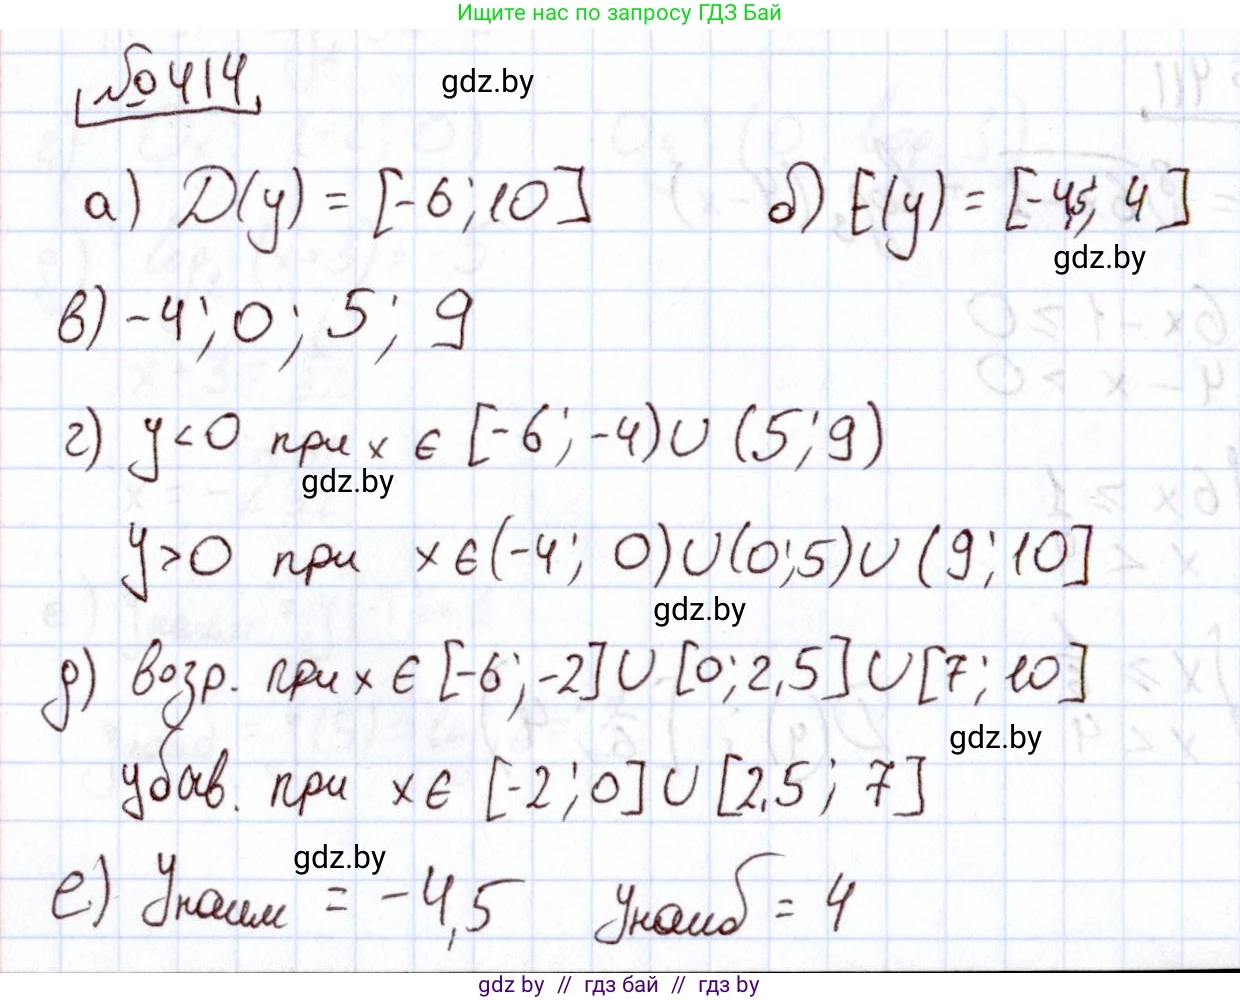 Ищите нас по запросу ГДЗ Бай
№414
gdz.by
а) D(y) = [-6; 10] б) E(y) = [-4,5; 4]
gdz.by
в) -4; 0; 5; 9
г) y<0 при x ∈ [-6; -4) ∪ (5; 9)
gdz.by
y>0 при x ∈ (-4; 0) ∪ (0; 5) ∪ (9; 10]
gdz.by
д) возр. при x ∈ [-6; -2] ∪ [0; 2,5] ∪ [7; 10]
gdz.by
убыв. при x ∈ [-2; 0] ∪ [2,5; 7]
gdz.by
е) yнаим = -4,5 yнаиб = 4
gdz.by // гдз бай // гдз by